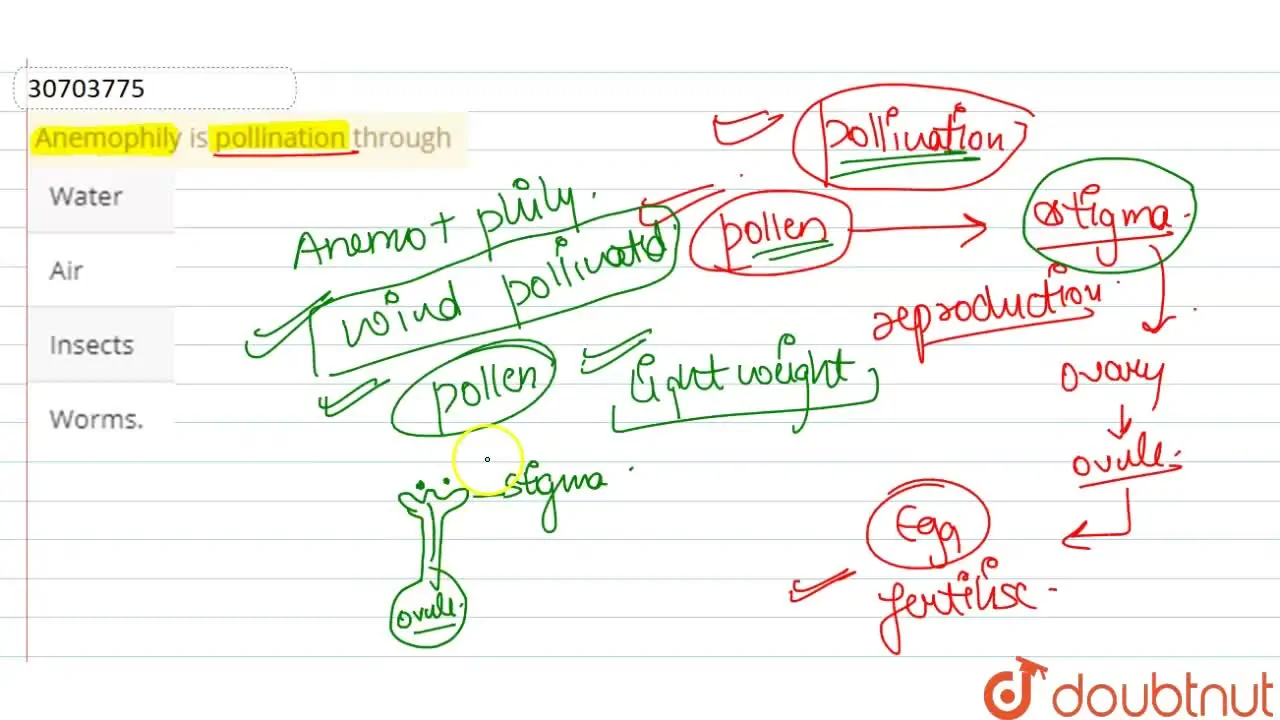 30703775
Anemophily is pollination through
Water
Air
Insects
Worms.
pollination
Anemo + phily.
pollen
stigma.
wind pollinated
reproduction.
pollen
light weight
ovary
ovule.
stigma.
Egg
fertilise.
ovule.
doubtnut